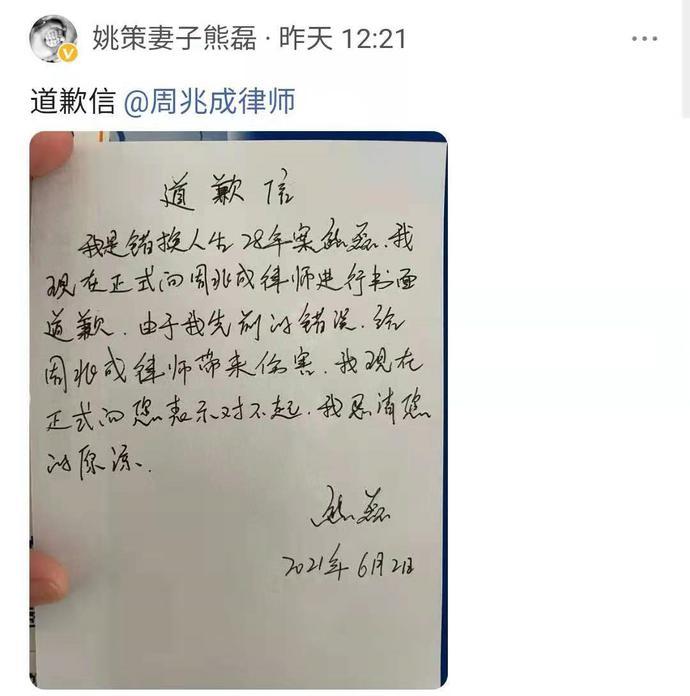 姚策妻子熊磊 · 昨天 12:21
道歉信 @周兆成律师
道歉信
我是错换人生28年案熊磊.我
现在正式向周兆成律师进行书面
道歉.由于我先前的错误.给
周兆成律师带来伤害.我现在
正式向您表示对不起.我恳请您
的原谅.
熊磊
2021年6月2日